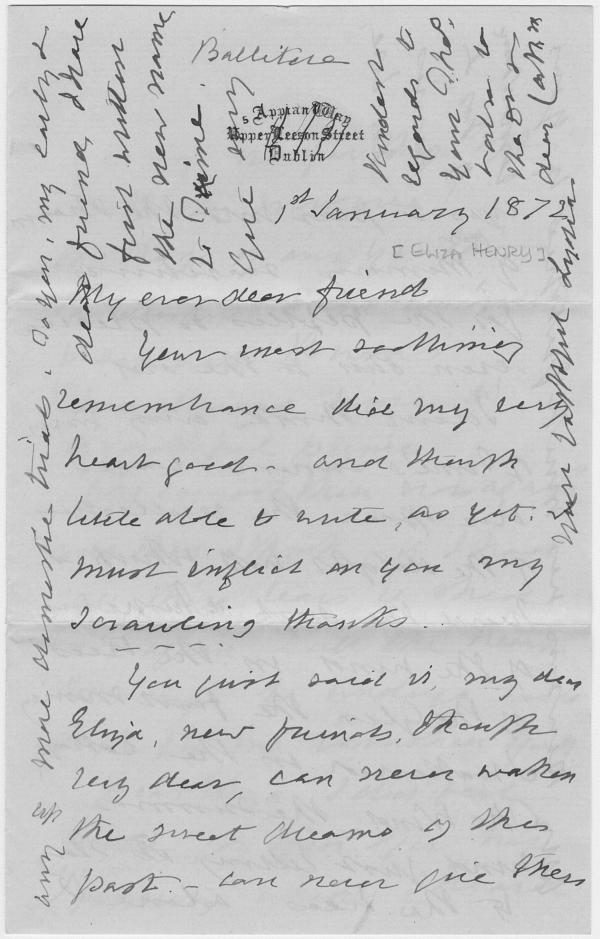 Ballitore
5 Appian Way
Upper Leeson Street
Dublin
1st January 1872
[ELIZA HENRY]
My ever dear friend
Your most soothing
remembrance did my very
heart good - and though
little able to write, as yet.
must inflict on you my
scrawling thanks.
You just said it, my dear
Eliza, new friends, though
very dear, can never waken
the sweet dreams of the
past - can never give them
any
more domestic trials. To you, my early &
dear friend, I have
first written
the new name
to
Kindest
regards to
your
to
dear
Your faithful Lydia